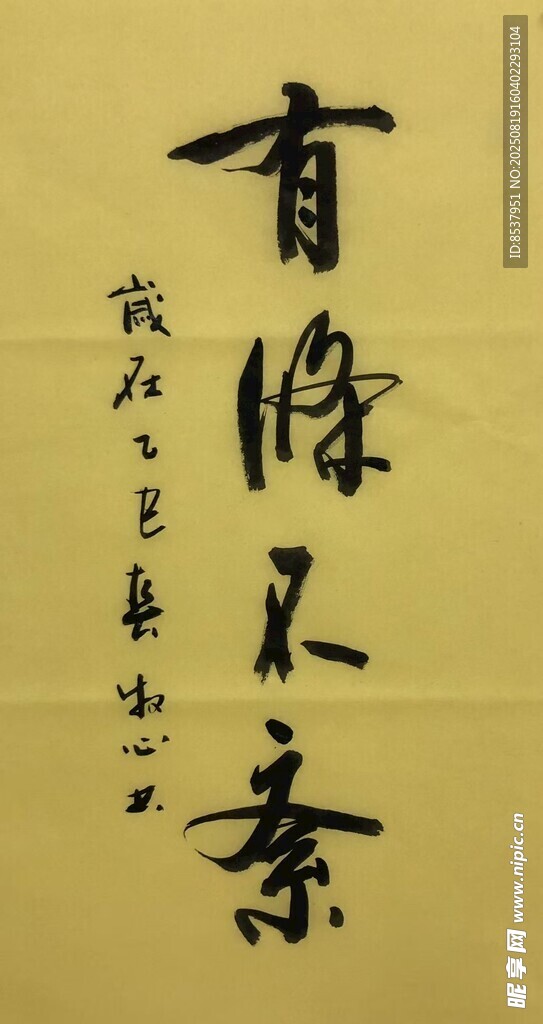 有條不紊
歲在乙巳春牧心书
ID:8537951 NO:20250819160402293104
昵享网 www.nipic.cn